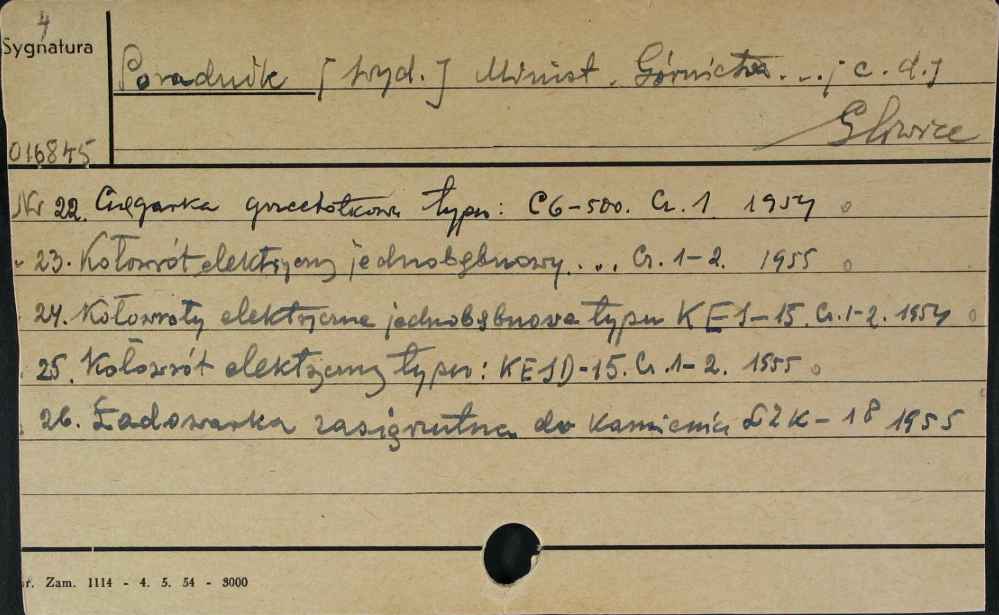 4
Sygnatura
Poradnik [wyd.] Minist. Górnictwa... [c. d.]
Gliwice
016845
Nr 22. Ciągarka grzechotkowa typu: CG-500. Cz. 1 1954
" 23. Kołowrót elektryczny jednobębnowy... Cz. 1-2. 1955
24. Kołowroty elektryczne jednobębnowe typu KES-15. Cz. 1-2. 1954
25. Kołowrót elektryczny typu: KESD-15. Cz. 1-2. 1955
26. Ładowarka zasięrzutna do kamienia ŁZK-18 1955
Zam. 1114 - 4. 5. 54 - 3000